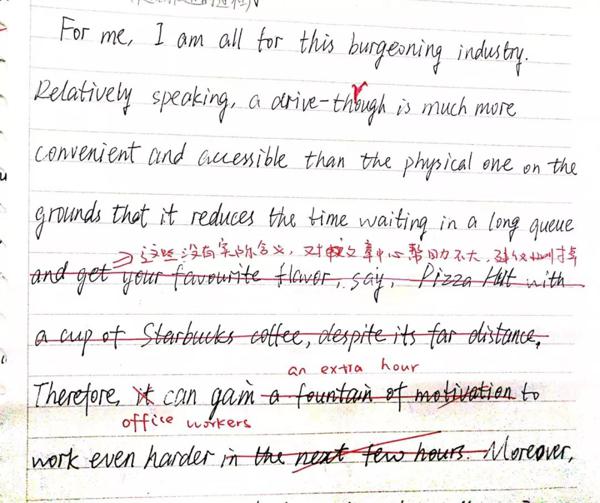 For me, I am all for this burgeoning industry.
Relatively speaking, a drive-though is much more
r
convenient and accessible than the physical one on the
grounds that it reduces the time waiting in a long queue
→这些没有实际含义，对文章中心帮助不大，建议删掉
and get your favourite flavor, say, Pizza Hut with
a cup of Starbucks coffee, despite its far distance,
an extra hour
Therefore, it can gain a fountain of motivation to
office workers
work even harder in the next few hours. Moreover,